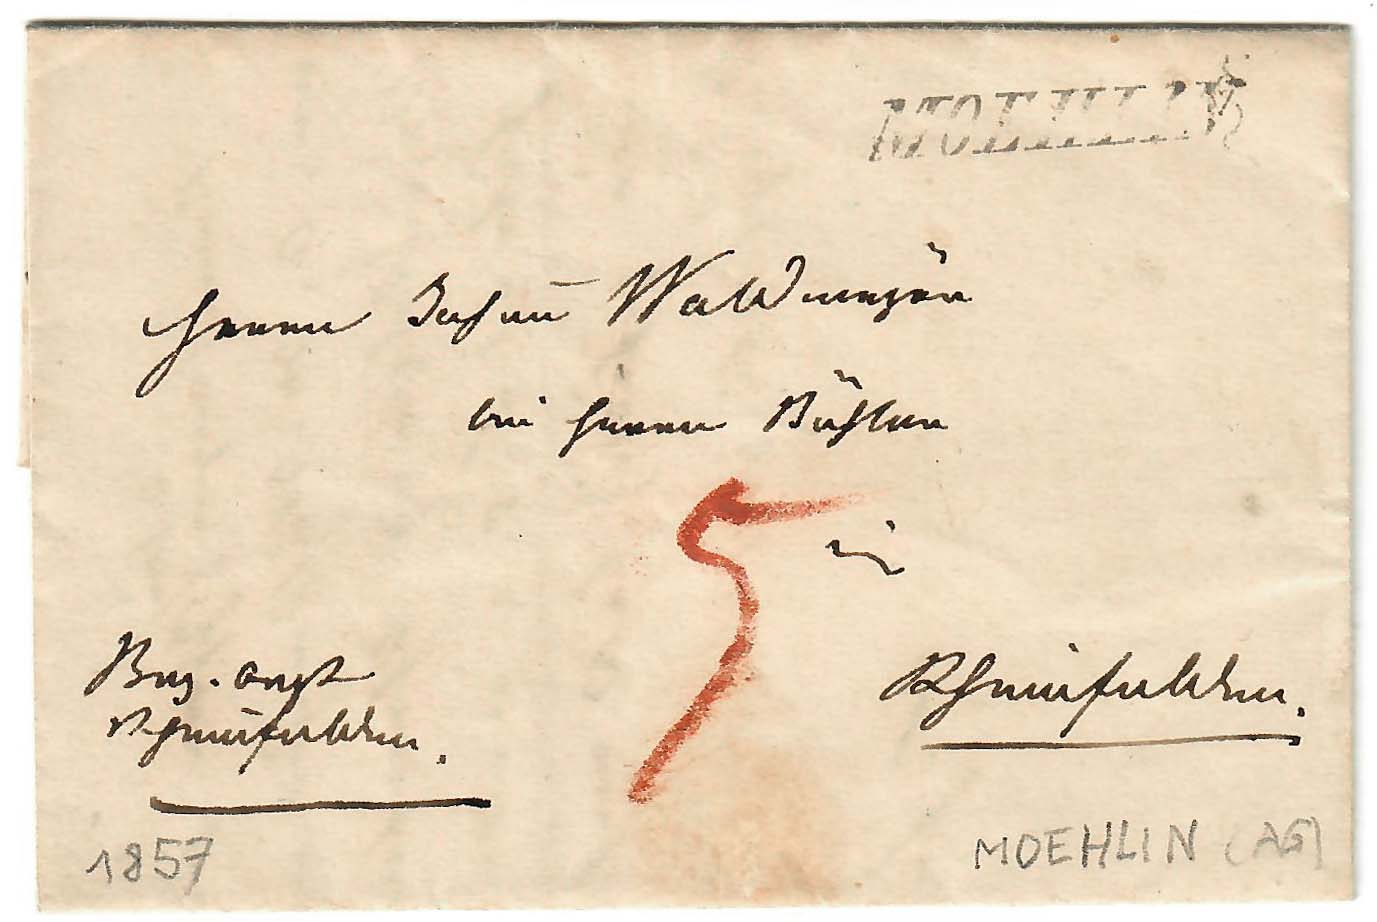 MOEHLIN
Herrn Johann Waldmeyer
bei Herrn
5
in
Bez. Amt Rheinfelden.
Rheinfelden.
1857
MOEHLIN (AG)